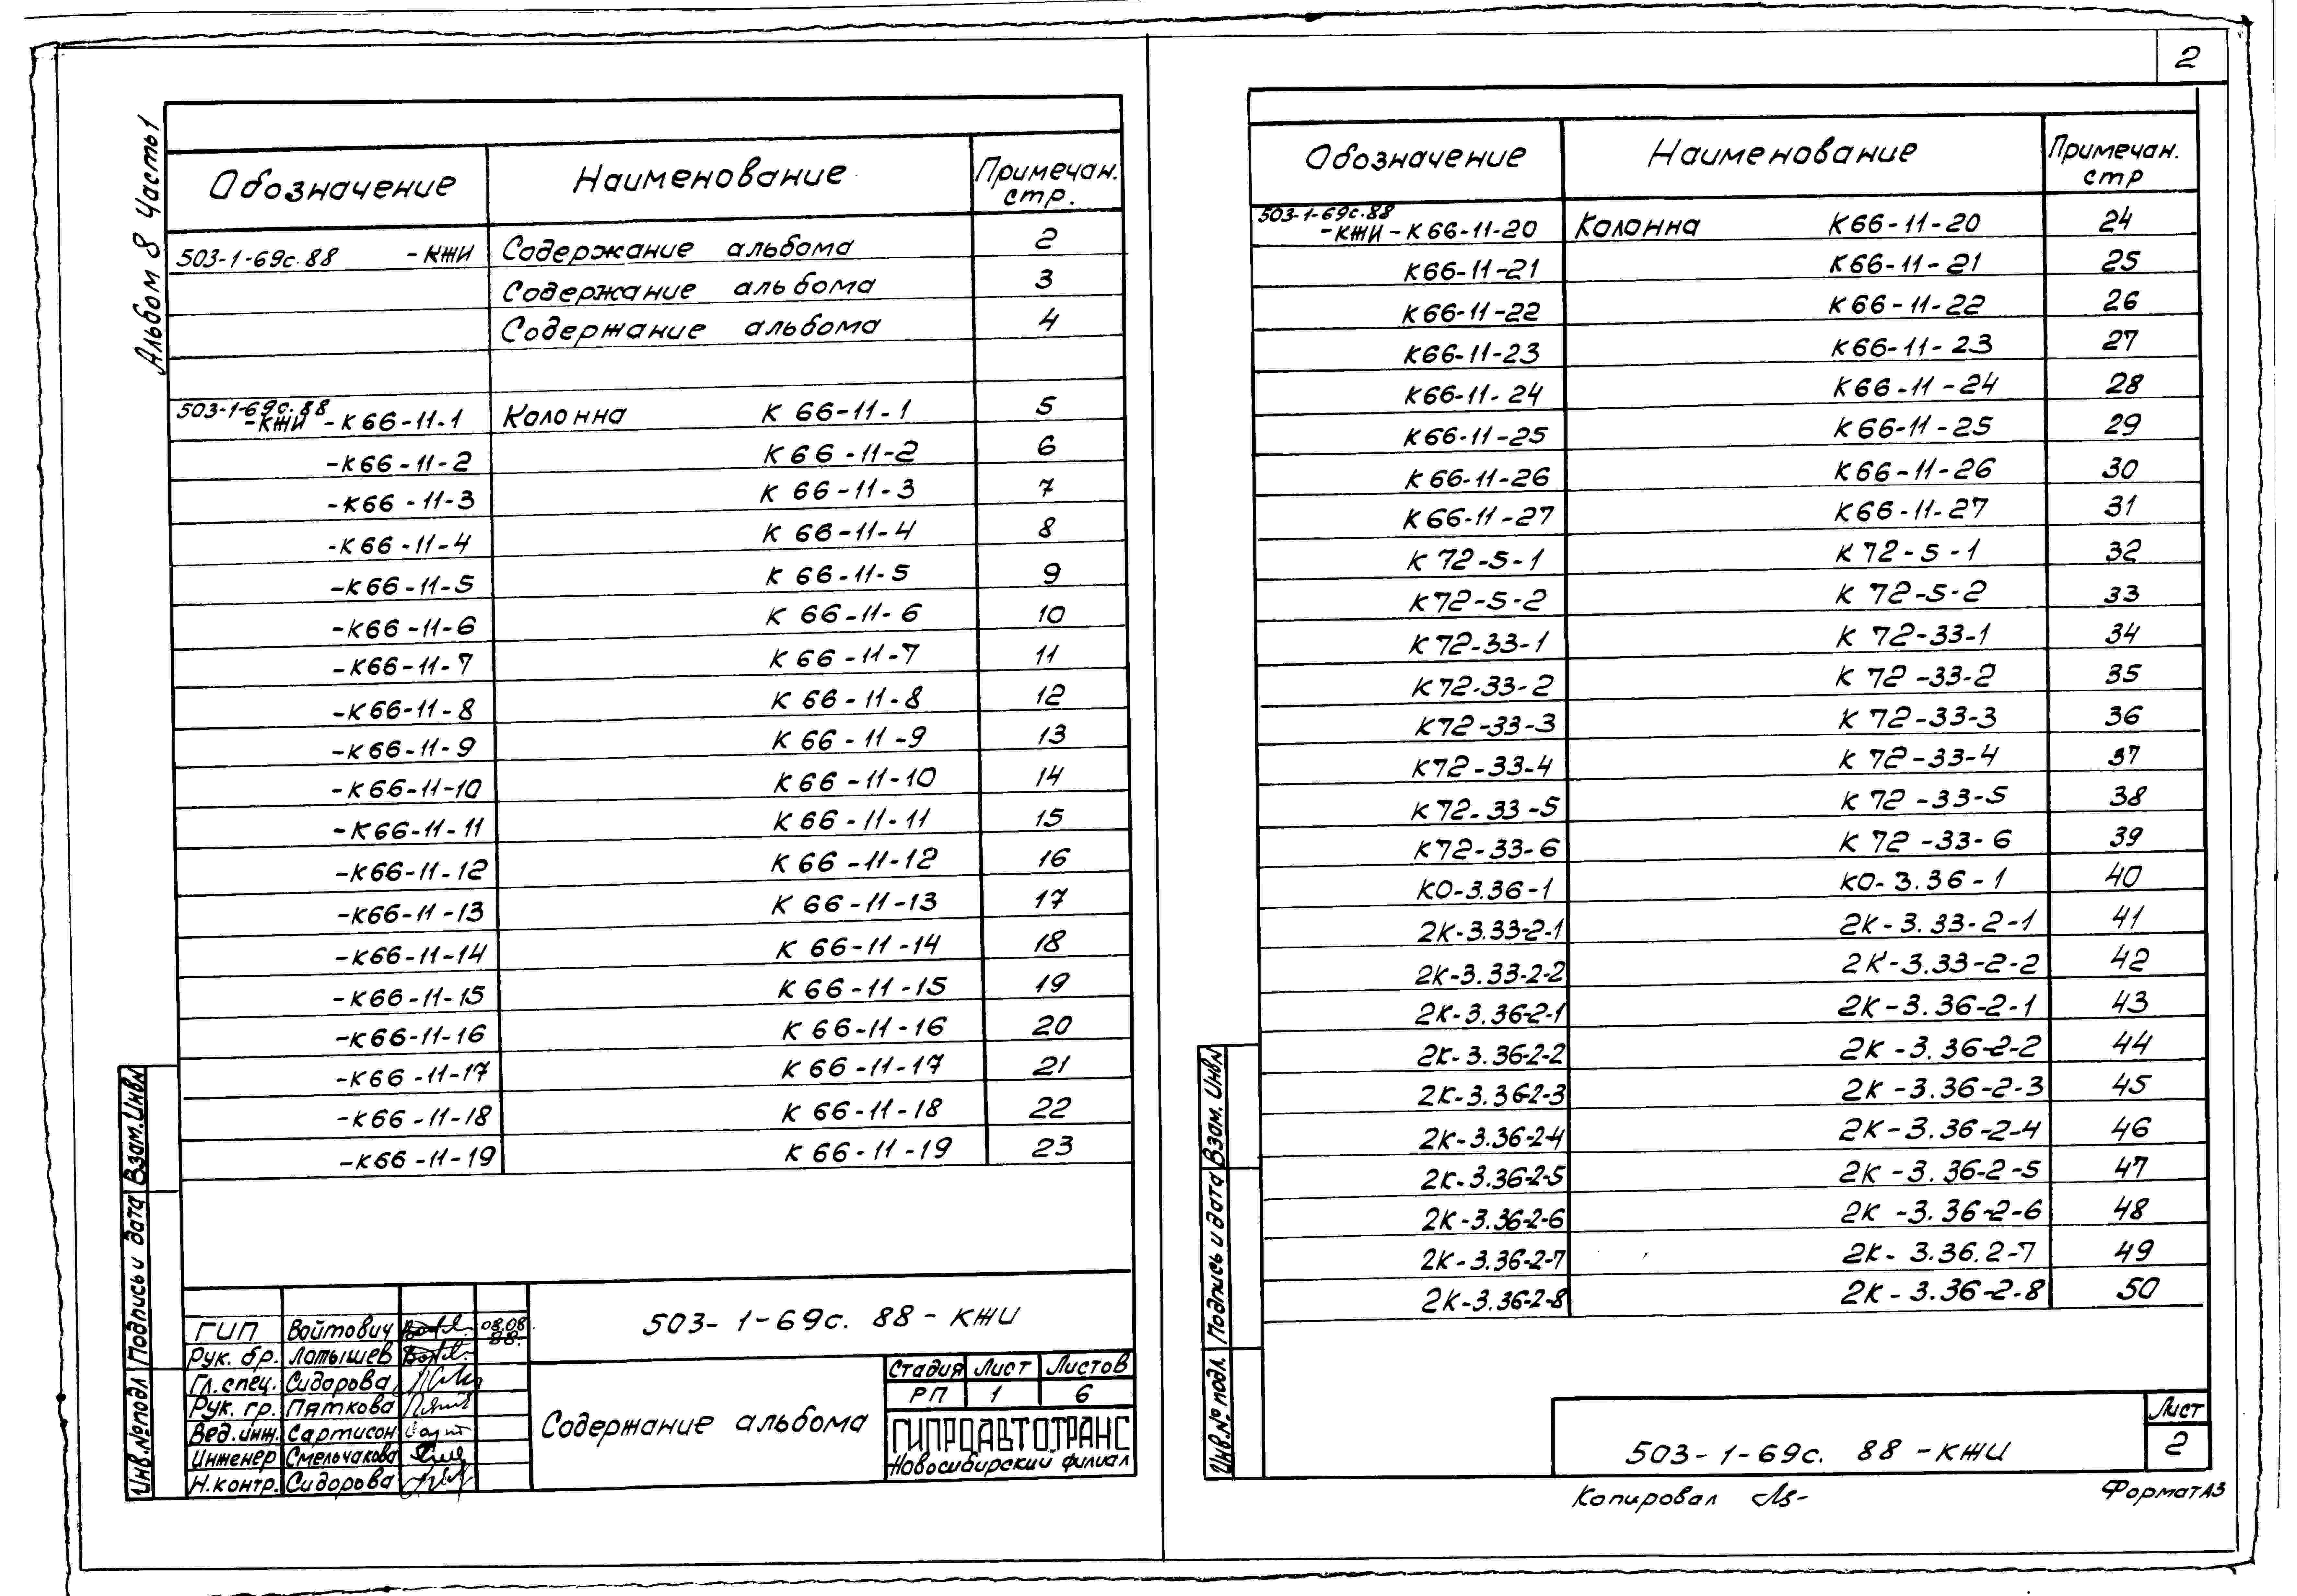 2
Альбом 8 Часть1
Обозначение Наименование Примечан. стр.
503-1-69с.88 -КЖИ Содержание альбома 2
Содержание альбома 3
Содержание альбома 4
503-1-69с.88
-КЖИ -К66-11-1 Колонна К 66-11-1 5
-К66-11-2 К 66-11-2 6
-К66-11-3 К 66-11-3 7
-К66-11-4 К 66-11-4 8
-К66-11-5 К 66-11-5 9
-К66-11-6 К 66-11-6 10
-К66-11-7 К 66-11-7 11
-К66-11-8 К 66-11-8 12
-К66-11-9 К 66-11-9 13
-К66-11-10 К 66-11-10 14
-К66-11-11 К 66-11-11 15
-К66-11-12 К 66-11-12 16
-К66-11-13 К 66-11-13 17
-К66-11-14 К 66-11-14 18
-К66-11-15 К 66-11-15 19
-К66-11-16 К 66-11-16 20
-К66-11-17 К 66-11-17 21
-К66-11-18 К 66-11-18 22
-К66-11-19 К 66-11-19 23
Взам.Инв№
Подпись и дата
Инв.№подл
ГИП Войтович 08.08.88.
Рук. бр. Латышев
Гл.спец. Сидорова
Рук. гр. Пяткова
Вед.инж. Сартисон
Инженер Смелочакова
Н.контр. Сидорова
503-1-69с. 88-КЖИ
Содержание альбома
Стадия Лист Листов
РП 1 6
ГИПРОАВТОТРАНС
Новосибирский филиал
Обозначение Наименование Примечан. стр
503-1-69с.88
-КЖИ-К66-11-20 Колонна К66-11-20 24
К66-11-21 К66-11-21 25
К66-11-22 К66-11-22 26
К66-11-23 К66-11-23 27
К66-11-24 К66-11-24 28
К66-11-25 К66-11-25 29
К66-11-26 К66-11-26 30
К66-11-27 К66-11-27 31
К 72-5-1 К 72-5-1 32
К72-5-2 К 72-5-2 33
К 72-33-1 К 72-33-1 34
К72-33-2 К 72-33-2 35
К72-33-3 К 72-33-3 36
К72-33-4 К 72-33-4 37
К 72-33-5 К 72-33-5 38
К72-33-6 К 72-33-6 39
КО-3.36-1 КО-3.36-1 40
2К-3.33-2-1 2К-3.33-2-1 41
2К-3.33-2-2 2К-3.33-2-2 42
2К-3.36-2-1 2К-3.36-2-1 43
2К-3.36-2-2 2К-3.36-2-2 44
2К-3.36-2-3 2К-3.36-2-3 45
2К-3.36-2-4 2К-3.36-2-4 46
2К-3.36-2-5 2К-3.36-2-5 47
2К-3.36-2-6 2К-3.36-2-6 48
2К-3.36-2-7 2К-3.36.2-7 49
2К-3.36-2-8 2К-3.36-2-8 50
Взам. Инв№
Подпись и дата
Инв.№ подл.
503-1-69с. 88-КЖИ
Лист
2
Копировал
Формат А3